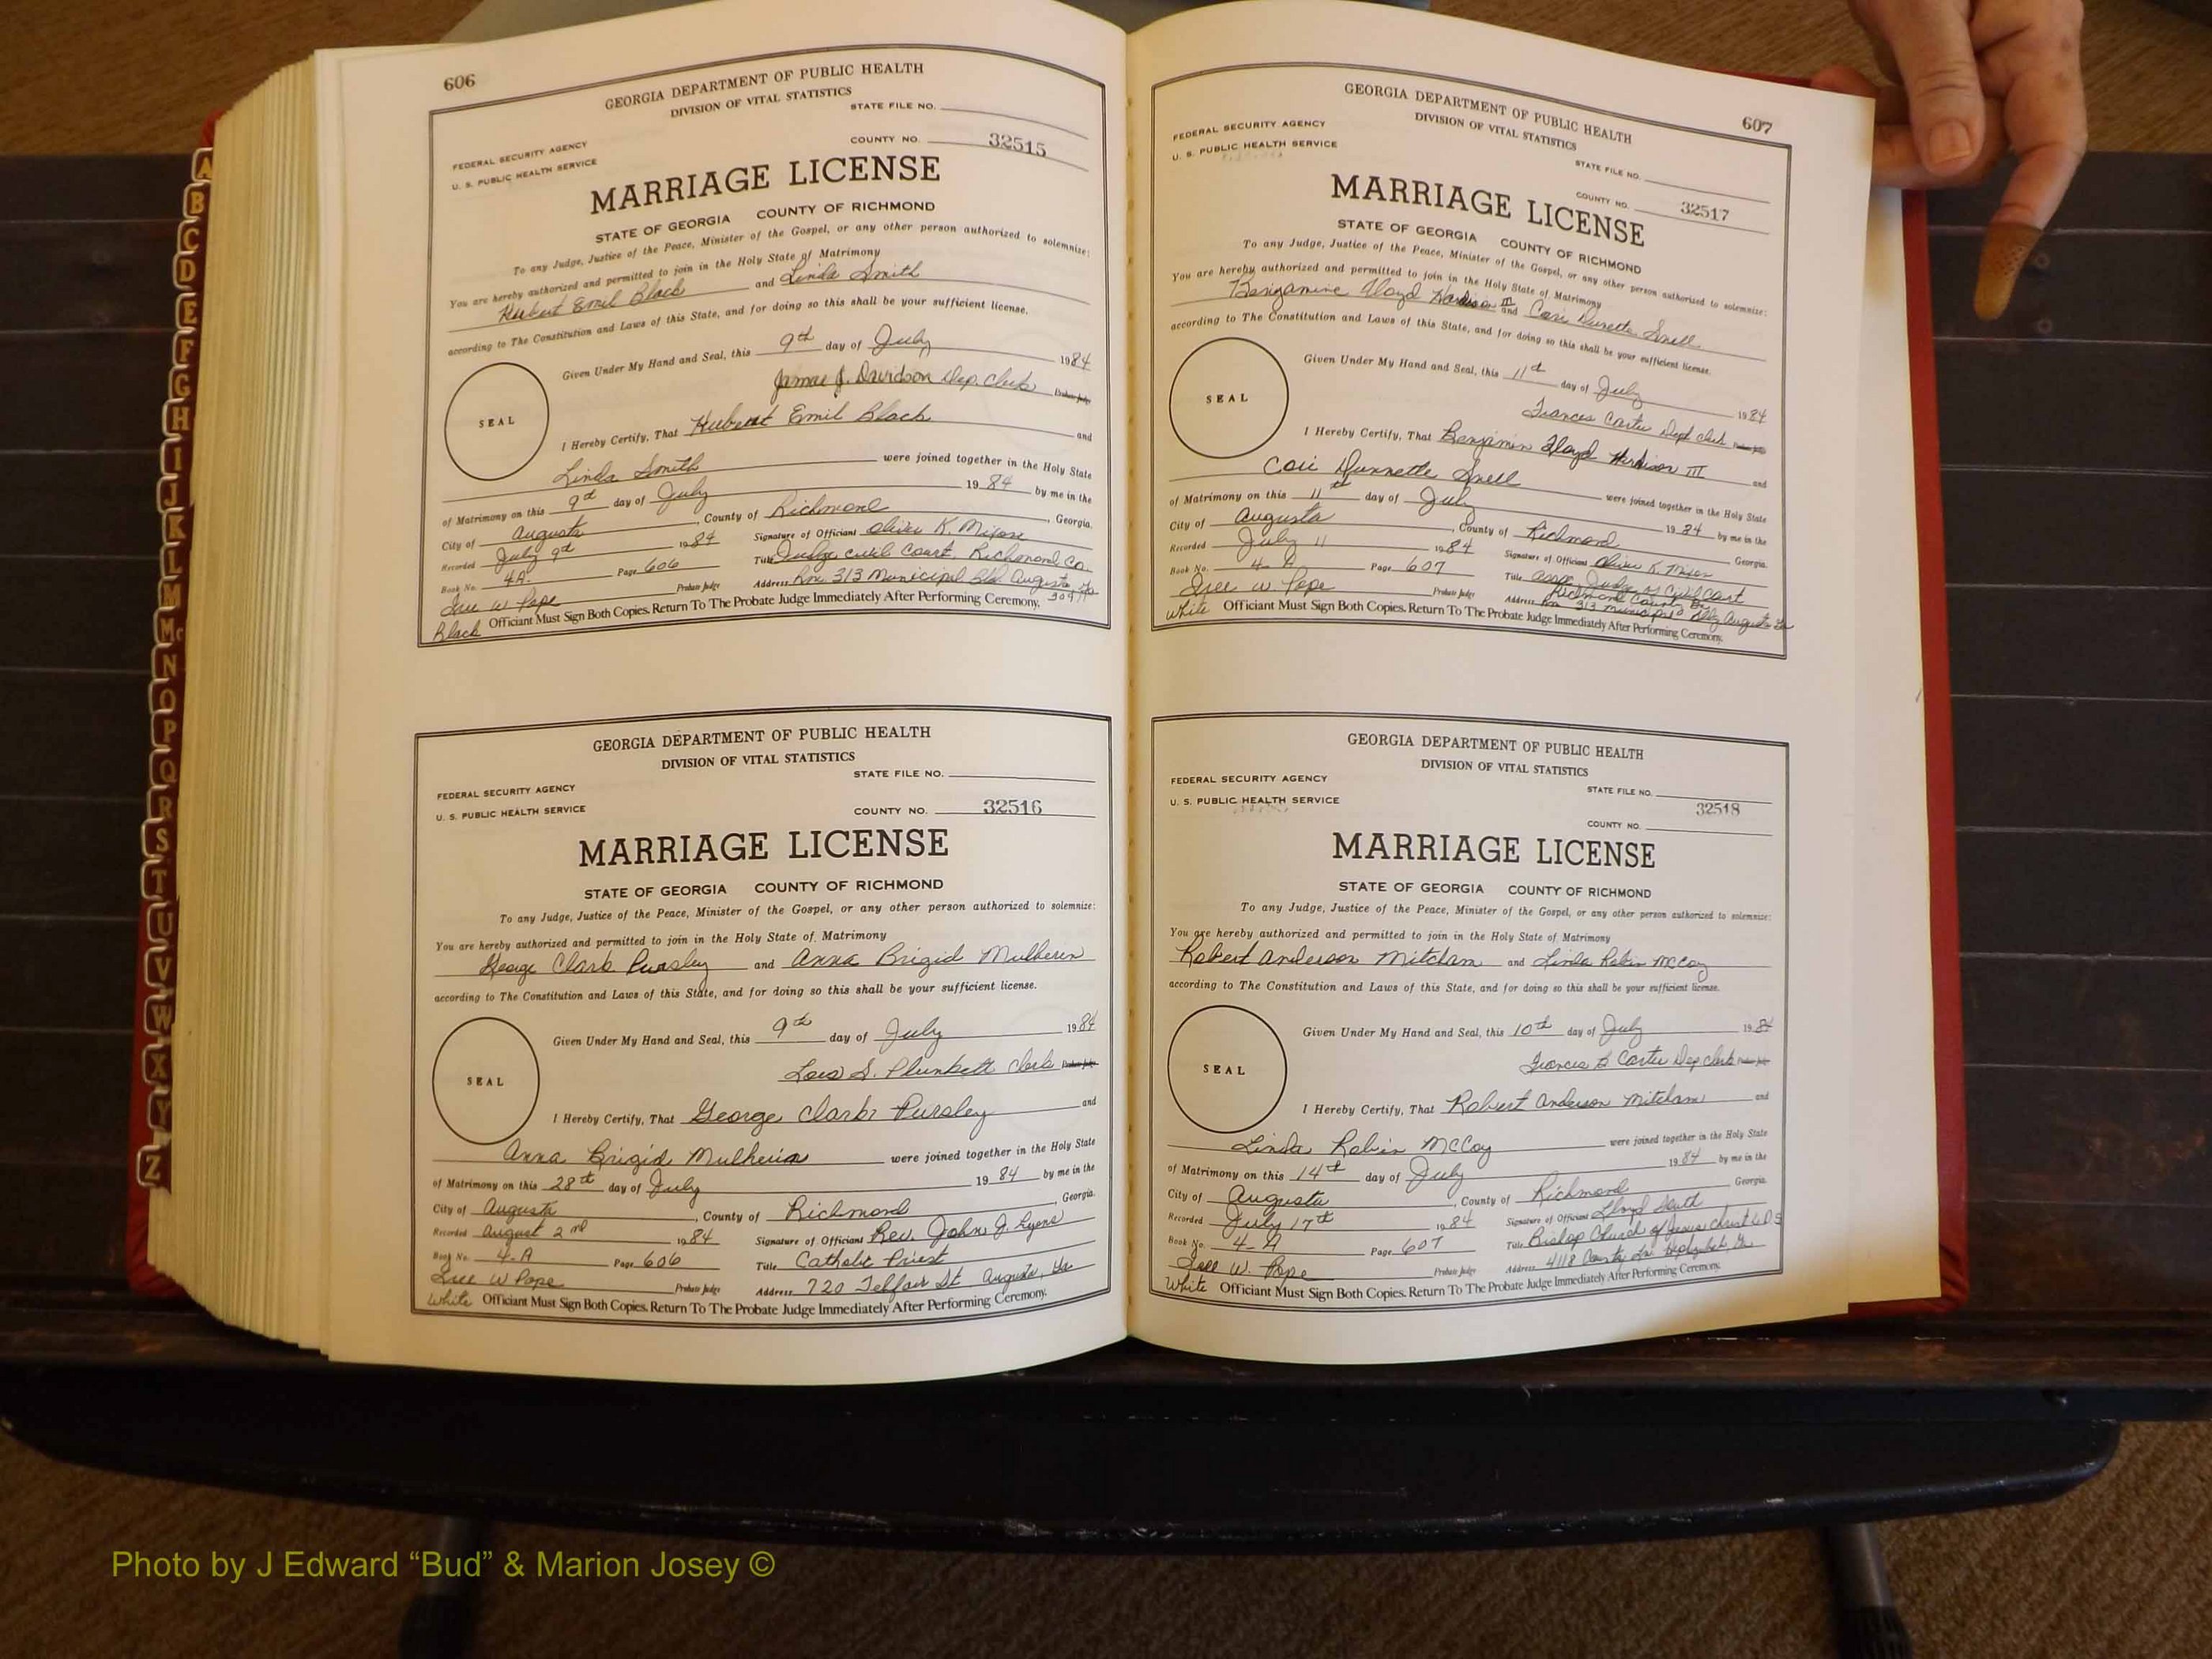 606
GEORGIA DEPARTMENT OF PUBLIC HEALTH
DIVISION OF VITAL STATISTICS
STATE FILE NO.
FEDERAL SECURITY AGENCY
COUNTY NO. 32515
U. S. PUBLIC HEALTH SERVICE
MARRIAGE LICENSE
STATE OF GEORGIA COUNTY OF RICHMOND
To any Judge, Justice of the Peace, Minister of the Gospel, or any other person authorized to solemnize:
You are hereby authorized and permitted to join in the Holy State of Matrimony
Hubert Emil Black and Linda Smith
according to The Constitution and Laws of this State, and for doing so this shall be your sufficient license.
Given Under My Hand and Seal, this 9th day of July 1984
James J. Davidson Dep. Clerk Probate Judge
SEAL
I Hereby Certify, That Hubert Emil Black and
Linda Smith were joined together in the Holy State
of Matrimony on this 9th day of July 1984 by me in the
City of Augusta, County of Richmond, Georgia.
Recorded July 9th 1984 Signature of Officiant Oliver K. Mixon
Book No. 4A Page 606 Title Judge civil Court, Richmond Co.
Probate Judge Address Rm 313 Municipal Bld Augusta Ga
W Pope
Black Officiant Must Sign Both Copies. Return To The Probate Judge Immediately After Performing Ceremony.
GEORGIA DEPARTMENT OF PUBLIC HEALTH
DIVISION OF VITAL STATISTICS
STATE FILE NO.
FEDERAL SECURITY AGENCY
U. S. PUBLIC HEALTH SERVICE
COUNTY NO. 32516
MARRIAGE LICENSE
STATE OF GEORGIA COUNTY OF RICHMOND
To any Judge, Justice of the Peace, Minister of the Gospel, or any other person authorized to solemnize:
You are hereby authorized and permitted to join in the Holy State of Matrimony
George Clark Pursley and Anna Brigid Mulherin
according to The Constitution and Laws of this State, and for doing so this shall be your sufficient license.
Given Under My Hand and Seal, this 9th day of July 1984
Lois S. Plunkett Clerk Probate Judge
SEAL
I Hereby Certify, That George Clark Pursley and
Anna Brigid Mulherin were joined together in the Holy State
of Matrimony on this 28th day of July 1984 by me in the
City of Augusta, County of Richmond, Georgia.
Recorded August 2nd 1984 Signature of Officiant Rev. John J. Lyons
Book No. 4-A Page 606 Title Catholic Priest
W Pope Probate Judge Address 720 Telfair St Augusta, Ga
White Officiant Must Sign Both Copies. Return To The Probate Judge Immediately After Performing Ceremony.
607
GEORGIA DEPARTMENT OF PUBLIC HEALTH
DIVISION OF VITAL STATISTICS
FEDERAL SECURITY AGENCY
U. S. PUBLIC HEALTH SERVICE
STATE FILE NO.
COUNTY NO. 32517
MARRIAGE LICENSE
STATE OF GEORGIA COUNTY OF RICHMOND
To any Judge, Justice of the Peace, Minister of the Gospel, or any other person authorized to solemnize:
You are hereby authorized and permitted to join in the Holy State of Matrimony
Benjamine Floyd Hardison III and Cori Snell
according to The Constitution and Laws of this State, and for doing so this shall be your sufficient license.
Given Under My Hand and Seal, this 11th day of July 1984
Frances Carter Dept clerk
SEAL
I Hereby Certify, That Benjamin Floyd Hardison III and
Cori Dunnette Snell were joined together in the Holy State
of Matrimony on this 11th day of July 1984 by me in the
City of Augusta, County of Richmond Georgia.
Recorded July 11 1984 Signature of Officiant Oliver K. Mixon
Book No. 4-A Page 607 Title Judge of Civil Court
W Pope Probate Judge Richmond County
Address Rm 313 Municipal Bldg Augusta Ga
White Officiant Must Sign Both Copies. Return To The Probate Judge Immediately After Performing Ceremony.
GEORGIA DEPARTMENT OF PUBLIC HEALTH
DIVISION OF VITAL STATISTICS
FEDERAL SECURITY AGENCY
STATE FILE NO.
U. S. PUBLIC HEALTH SERVICE
32518
COUNTY NO.
MARRIAGE LICENSE
STATE OF GEORGIA COUNTY OF RICHMOND
To any Judge, Justice of the Peace, Minister of the Gospel, or any other person authorized to solemnize:
You are hereby authorized and permitted to join in the Holy State of Matrimony
Robert Anderson Mitcham and Linda Robin McCoy
according to The Constitution and Laws of this State, and for doing so this shall be your sufficient license.
Given Under My Hand and Seal, this 10th day of July 1984
Frances B Carter Dep clerk Probate Judge
SEAL
I Hereby Certify, That Robert Anderson Mitcham and
Linda Robin McCoy were joined together in the Holy State
of Matrimony on this 14th day of July 1984 by me in the
City of Augusta, County of Richmond Georgia.
Recorded July 17th 1984 Signature of Officiant Lloyd
Book No. 4-A Page 607 Title Bishop Church of Jesus Christ L D S
W. Pope Probate Judge Address 4118 Hephzibah, Ga.
White Officiant Must Sign Both Copies. Return To The Probate Judge Immediately After Performing Ceremony.
A
B
C
D
E
F
G
H
I
J
K
L
M
Mc
N
O
P
Q
R
S
T
U
V
W
X
Y
Z
Photo by J Edward “Bud” & Marion Josey ©